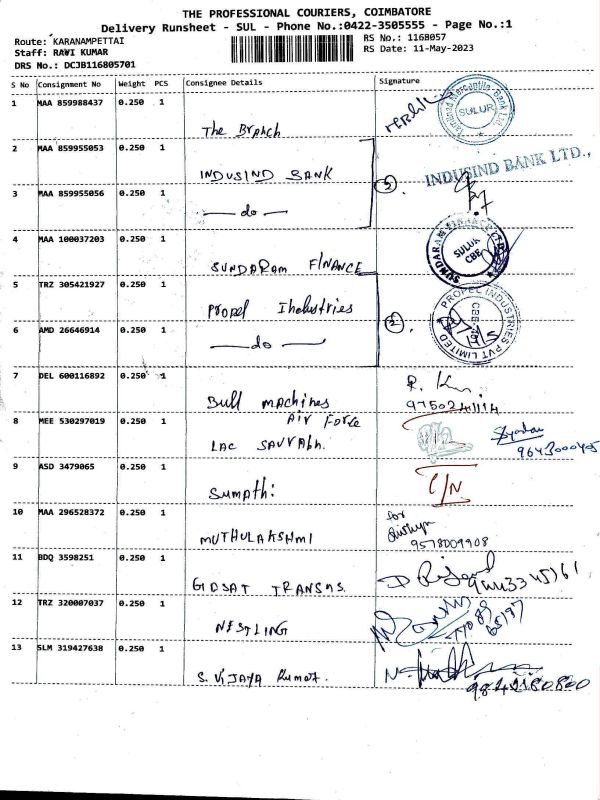 THE PROFESSIONAL COURIERS, COIMBATORE
Delivery Runsheet - SUL - Phone No.:0422-3505555 - Page No.:1
Route: KARANAMPETTAI
RS No.: 1168057
Staff: RAVI KUMAR
RS Date: 11-May-2023
DRS No.: DCJB116805701
S No Consignment No Weight PCS Consignee Details Signature
1 MAA 859988437 0.250 1
The Branch
SULUR
2 MAA 859955053 0.250 1
INDUSIND BANK
INDUSIND BANK LTD.,
3 MAA 859955056 0.250 1
— do —
4 MAA 100037203 0.250 1
SUNDARAM FINANCE
SUNDARAM FINANCE LTD
SULUR
CBE
5 TRZ 305421927 0.250 1
Propel Industries
PROPEL INDUSTRIES PVT LIMITED
6 AMD 26646914 0.250 1
— do —
2
7 DEL 600116892 0.250 1
Bull machines
R. K
8 MEE 530297019 0.250 1
Air Force
LAC SAURABH.
9 ASD 3479065 0.250 1
Sumathi
C/N
10 MAA 296528372 0.250 1
MUTHULAKSHMI
for
9578009908
11 BDQ 3598251 0.250 1
12 TRZ 320007037 0.250 1
NESTLING
13 SLM 319427638 0.250 1
S. VIJAYA Kumar.